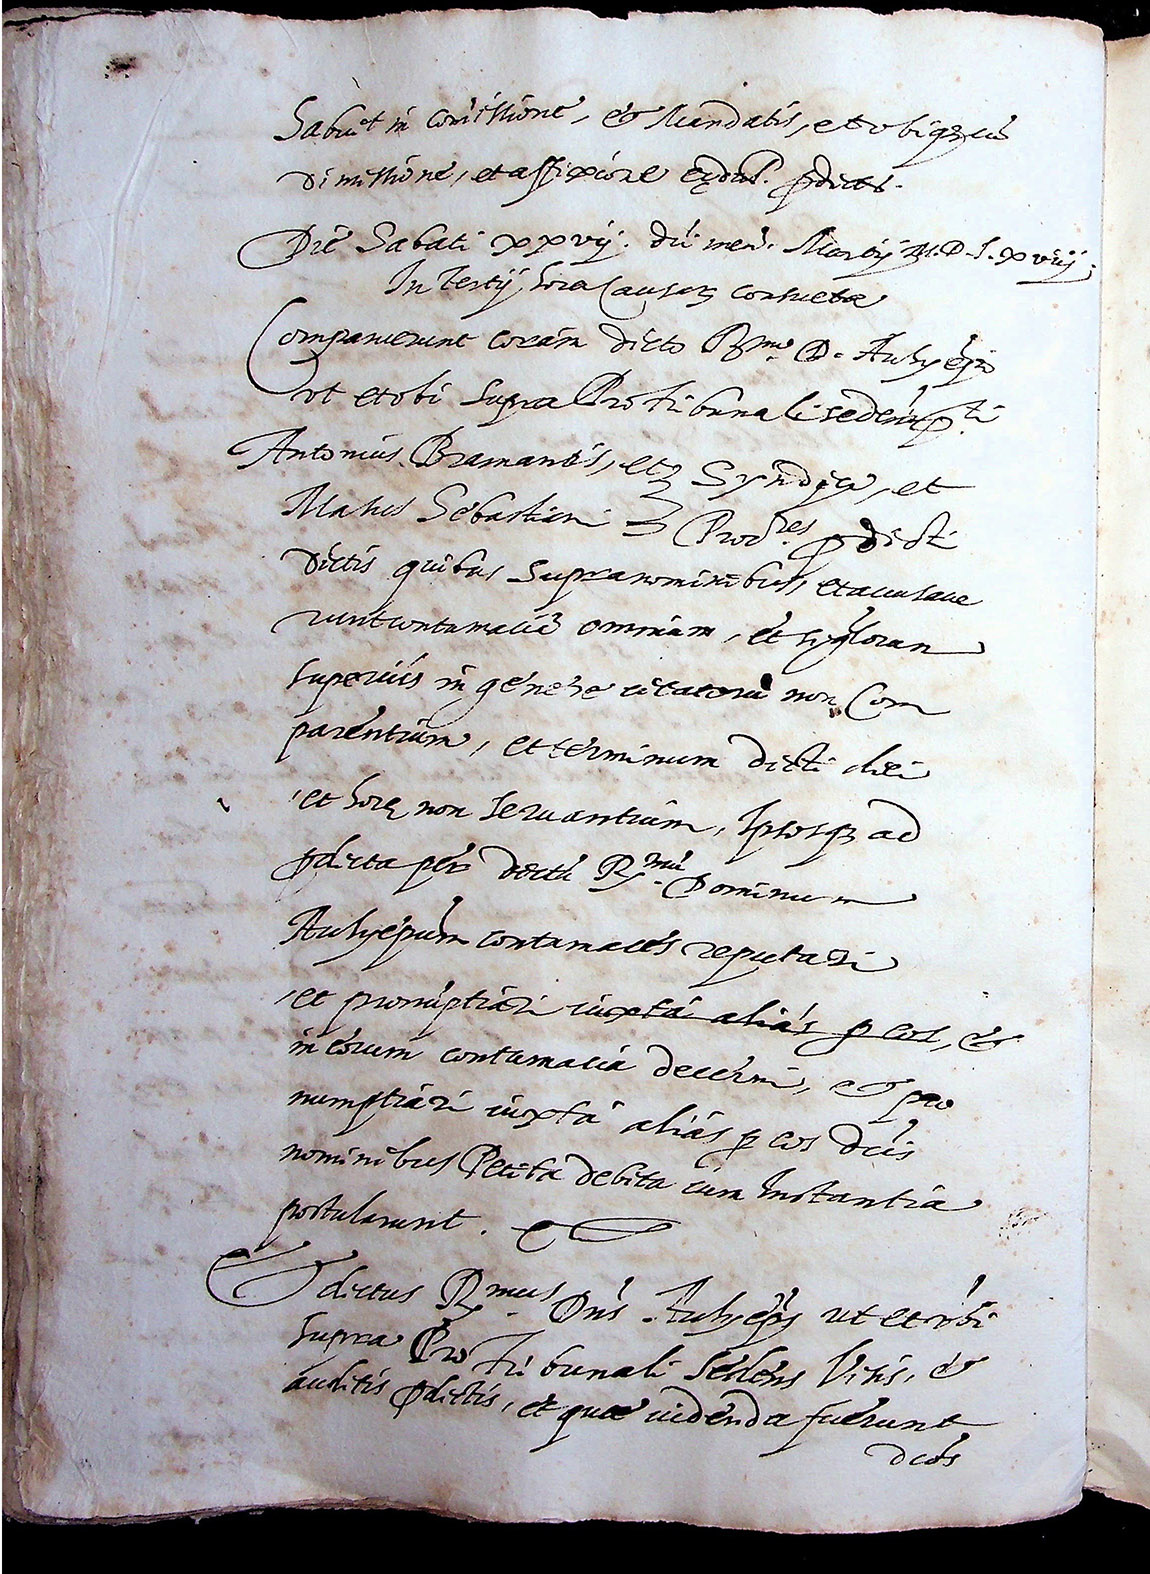 Habuit in comissione, & Mandatis, et obiqz cũ
dimissione, et affixione eoru͂d. p̱dictis.
Die Sabati xxvij. dicti men. Martij M.D.L.xviij.
In Tertijs hora Causarz consueta
Comparuerunt coram dicto Rmo. D. Archiep̃o
ut et ubi supra Pro Tribunali seden͂ p̱.ti
Antonius Bramantis, et Syndicus, et
Matus Sebastiani Proc.res p̱dicti
dictis quibus supra nominibus, et accusaue
runt contumaciã omnium, et singlorum
superius in genere citatorũ non Com
parentium, et terminum dicti diei
et horę non seruantium, Ipsosqz ad
p̱dicta per dictũ R.mũ Dominum
Archiep̃um contumaces reputari
et pronũptiari iuxta alias p̱ eos, &
in eorum contumacia decerni, & pro
numptiari iuxta alias p̱ eos dictis
nominibus Petita debita cum Instantia
postularunt.
Et dictus R.mus Dñs Archiep̃us ut et ubi
supra Pro Tribunali Sedens Visis, &
auditis p̱dictis, et quae uidenda fuerunt
dictos